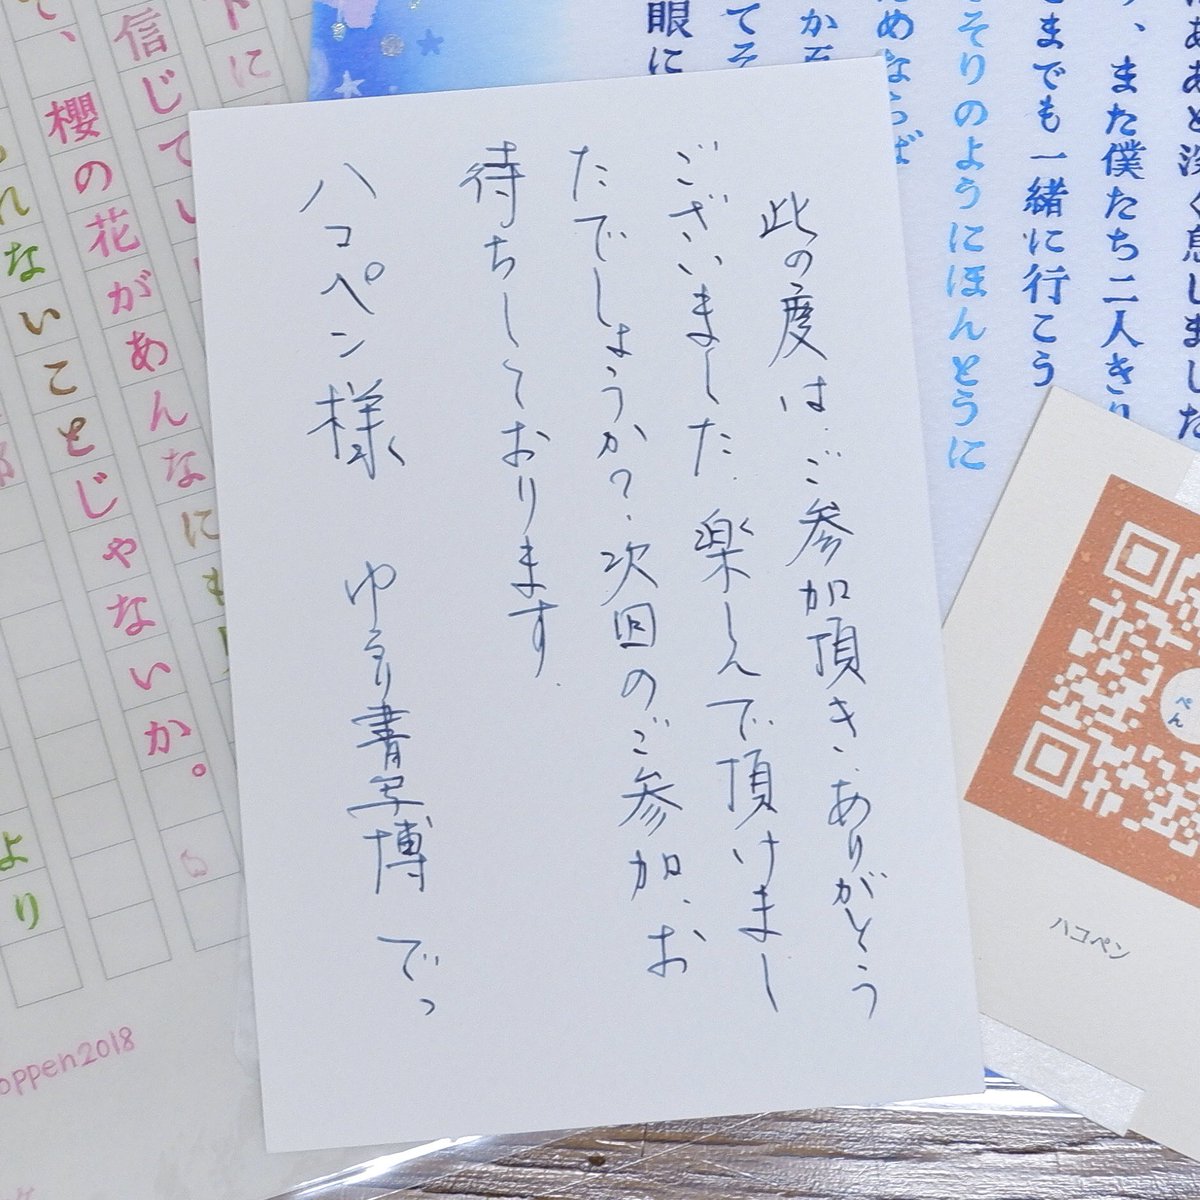 此の度は、ご参加頂き、ありがとう
ございました。楽しんで頂けまし
たでしょうか?次回のご参加、お
待ちしております。
ハコペン様 ゆる書写博 でっ
はああと深く息しました
、また僕たち二人きり
こまでも一緒に行こう
そりのようにほんとうに
めならば
か
てそ
眼に
下に
信じてい
櫻の花があんなにも
れないことじゃないか。
より
oppen2018
ぺん
ハコペン